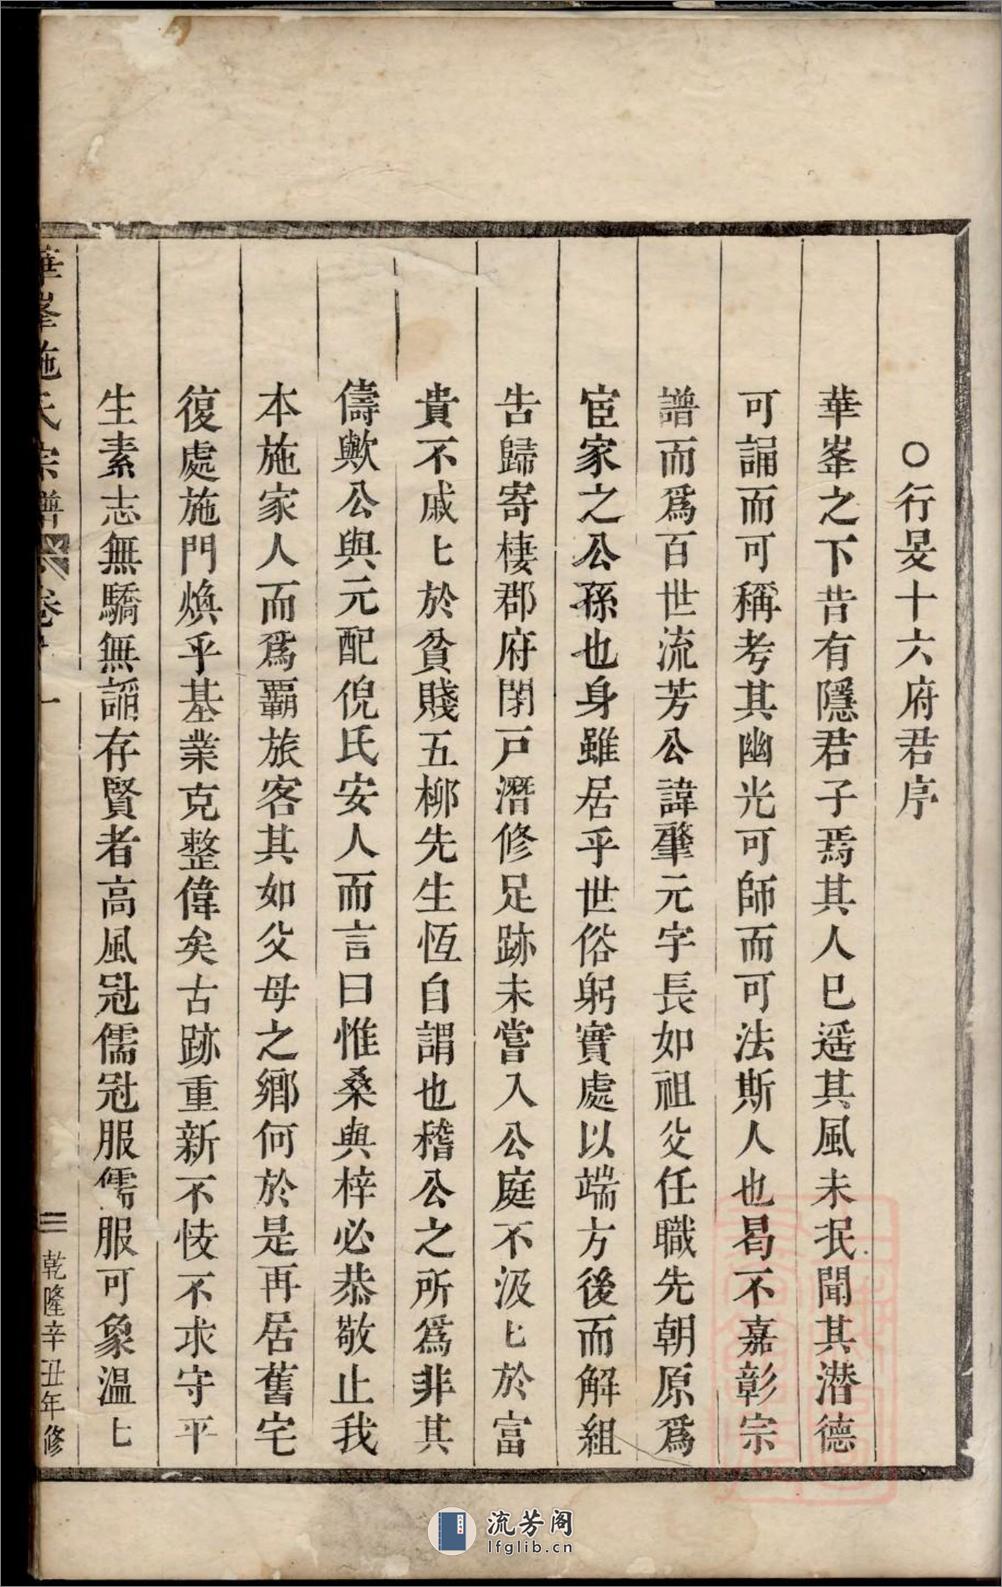 ○行旻十六府君序
華峯之下昔有隱君子焉其人已遥其風未泯聞其潜德
可誦而可稱考其幽光可師而可法斯人也曷不嘉彰宗
譜而爲百世流芳公諱肇元字長如祖父任職先朝原爲
宦家之公孫也身雖居乎世俗躬實處以端方後而解組
告歸寄棲郡府閉戸潛修足跡未嘗入公庭不汲匕於富
貴不戚匕於貧賤五柳先生恆自謂也稽公之所爲非其
儔歟公與元配倪氏安人而言曰惟桑與梓必恭敬止我
本施家人而爲覇旅客其如父母之鄉何於是再居舊宅
復處施門煥乎基業克整偉矣古跡重新不忮不求守平
生素志無驕無謟存賢者高風冠儒冠服儒服可象温匕
華峯施氏宗譜 卷十一 三 乾隆辛丑年修
流芳阁
lfglib.cn